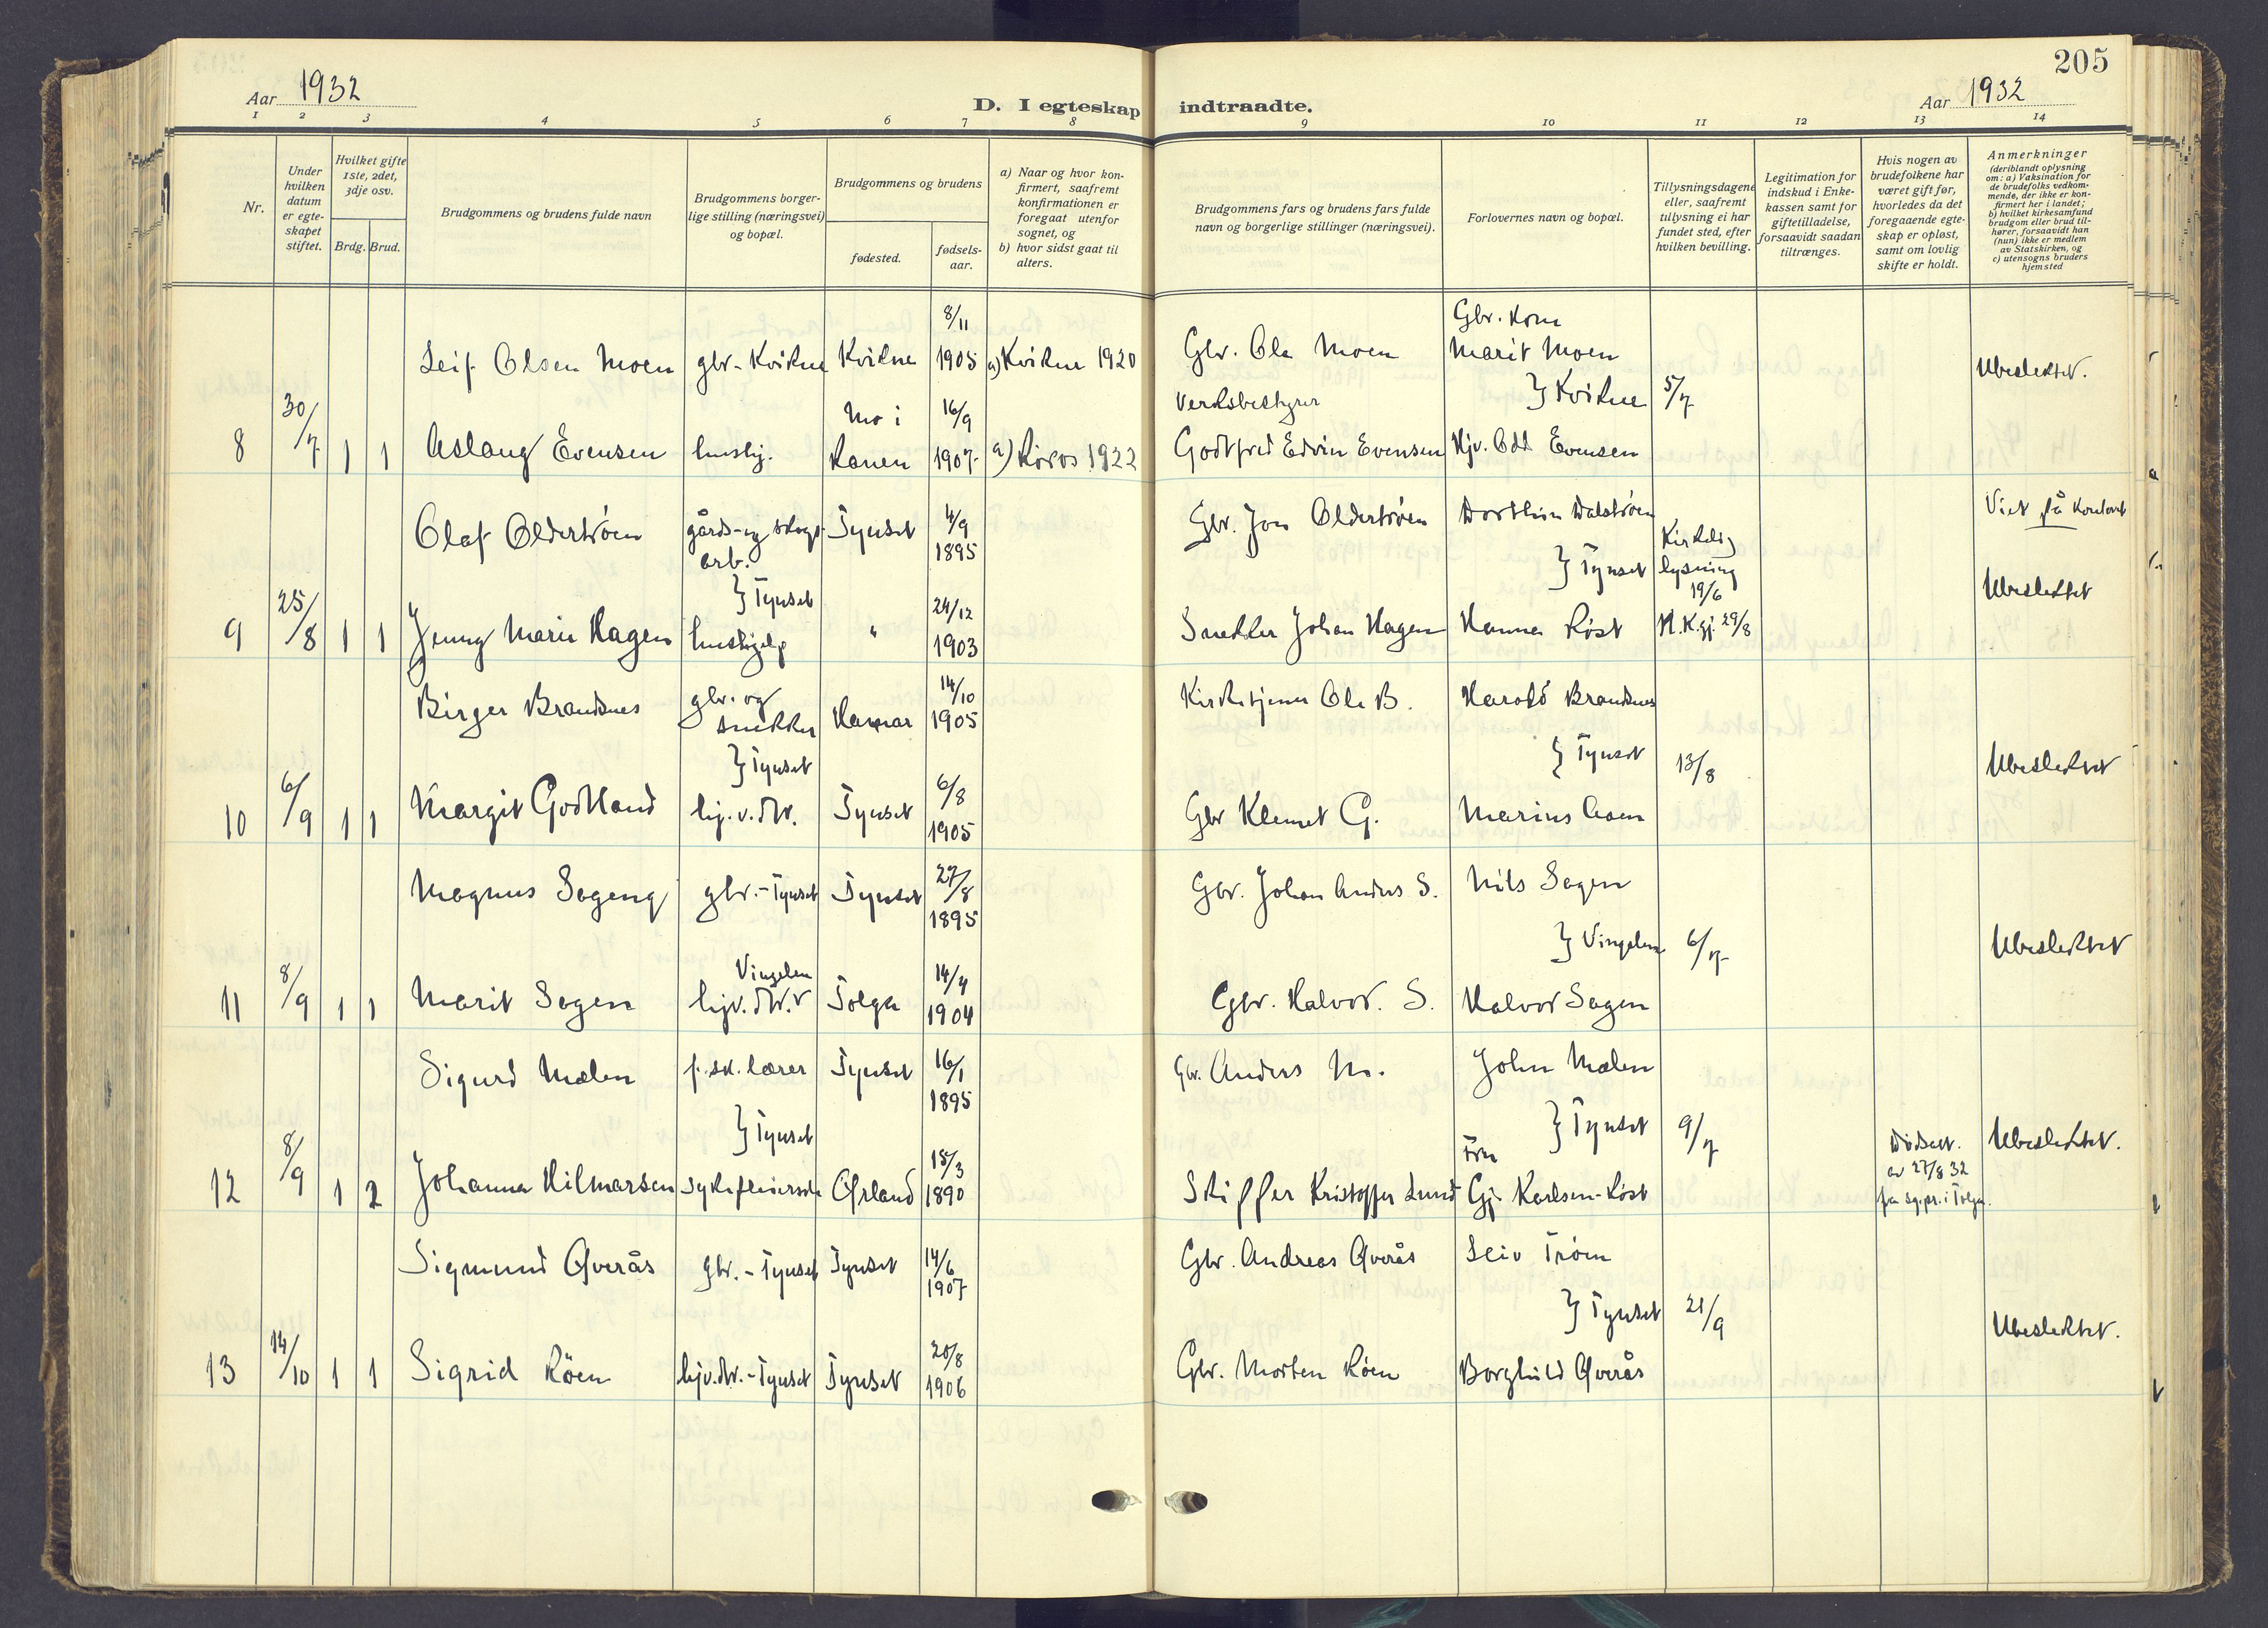 205
Aar 1932
D. I egteskap indtraadte.
Aar 1932
1 2 3 4 5 6 7 8 9 10 11 12 13 14
Nr.
Under hvilken datum er egteskapet stiftet.
Hvilket gifte 1ste, 2det, 3dje osv.
Brdg. Brud.
Brudgommens og brudens fulde navn
Brudgommens borgerlige stilling (næringsvei) og bopæl.
Brudgommens og brudens
fødested.
fødselsaar.
a) Naar og hvor konfirmert, saafremt konfirmationen er foregaat utenfor sognet, og
b) hvor sidst gaat til alters.
Brudgommens fars og brudens fars fulde navn og borgerlige stillinger (næringsvei).
Forlovernes navn og bopæl.
Tillysningsdagene eller, saafremt tillysning ei har fundet sted, efter hvilken bevilling.
Legitimation for indskud i Enkekassen samt for giftetilladelse, forsaavidt saadan tiltrænges.
Hvis nogen av brudefolkene har været gift før, hvorledes da det foregaaende egteskap er opløst, samt om lovlig skifte er holdt.
Anmerkninger
(deriblandt oplysning om: a) Vaksination for de brudefolks vedkommende, der ikke er konfirmert her i landet;
b) hvilket kirkesamfund brudgom eller brud tilhører, forsaavidt han (hun) ikke er medlem av Statskirken, og
c) utensogns bruders hjemsted
8/11
Gbr. Kone
Leif Olsen Moen gbr-Kvikne Kvikne 1905 a) Kvikne 1920 Gbr. Ola Moen Marit Moen Ubeslektet.
30/7 Mo i 16/9 Verksbestyrer } Kvikne 5/7
8 1 1 Aslaug Evensen hushj. Ranen 1907 a) Røros 1922 Godtfred Edvin Evensen Hjv. Odd Evensen
Olaf Oldertrøen gårds- og skogs- Tynset 4/9 Gbr. Jon Oldertrøen Dorthin Dalstrøen Viet på kontoret
arb. 1895 Kirkelig
} Tynset } Tynset lysning Ubeslektet
25/8 24/12 19/6
9 1 1 Jenny Marie Hagen hushjelp " 1903 Snekker Johan Hagen Hanna Røst H.K.gj. 29/8
Birger Brandsnes gbr. og 14/10 Kirketjener Ole B. Harold Brandsnes
snekker Hamar 1905
} Tynset } Tynset 13/8 Ubeslektet
6/9 6/8
10 1 1 Margit Godtland hj. v. Tynset 1905 Gbr Klemet G. Marius Aaen
Magnus Sageng gbr.-Tynset Tynset 27/8 Gbr. Johan Anders S. Nils Sagen
1895
} Vingelen 6/7 Ubeslektet
8/9 Vingelen 14/4
11 1 1 Marit Sagen hjv. Tolga 1904 Gbr. Halvor. S. Halvor Sagen
Sigurd Mælen f.sk. lærer Tynset 16/1 Gbr. Anders M. John Mælen
1895
} Tynset } Tynset 9/7 Dødsatt. Ubeslektet.
8/9 15/3 Fru av 27/8 32
12 1 2 Johanna Hilmarsen Ørland 1890 Skipper Kristoffer Lund Gj. Karlsen-Røst
Sigmund Øverås gbr.-Tynset Tynset 14/6 Gbr. Andreas Øverås Leiv Trøen
1907
} Tynset 21/9 Ubeslektet.
14/10 20/8
13 1 1 Sigrid Røen Tynset Tynset 1906 Gbr. Morten Røen Borghild Øverås